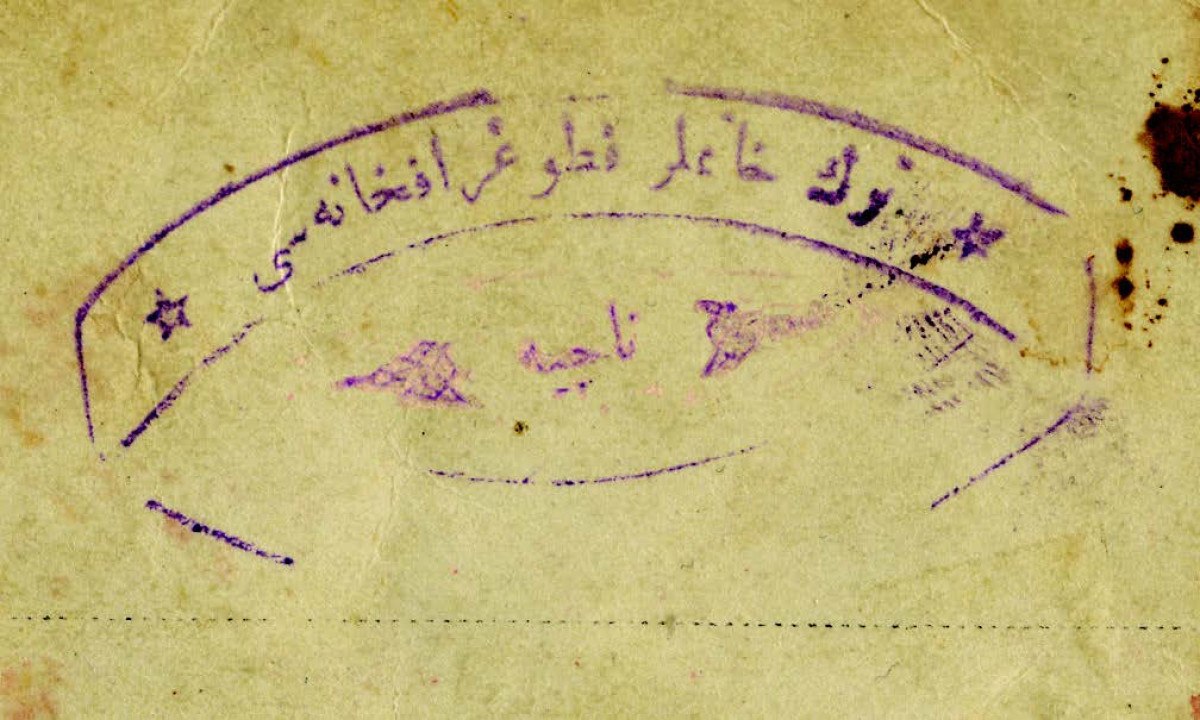 تورك خانملر فطوغرافخانه سی
ناجیه